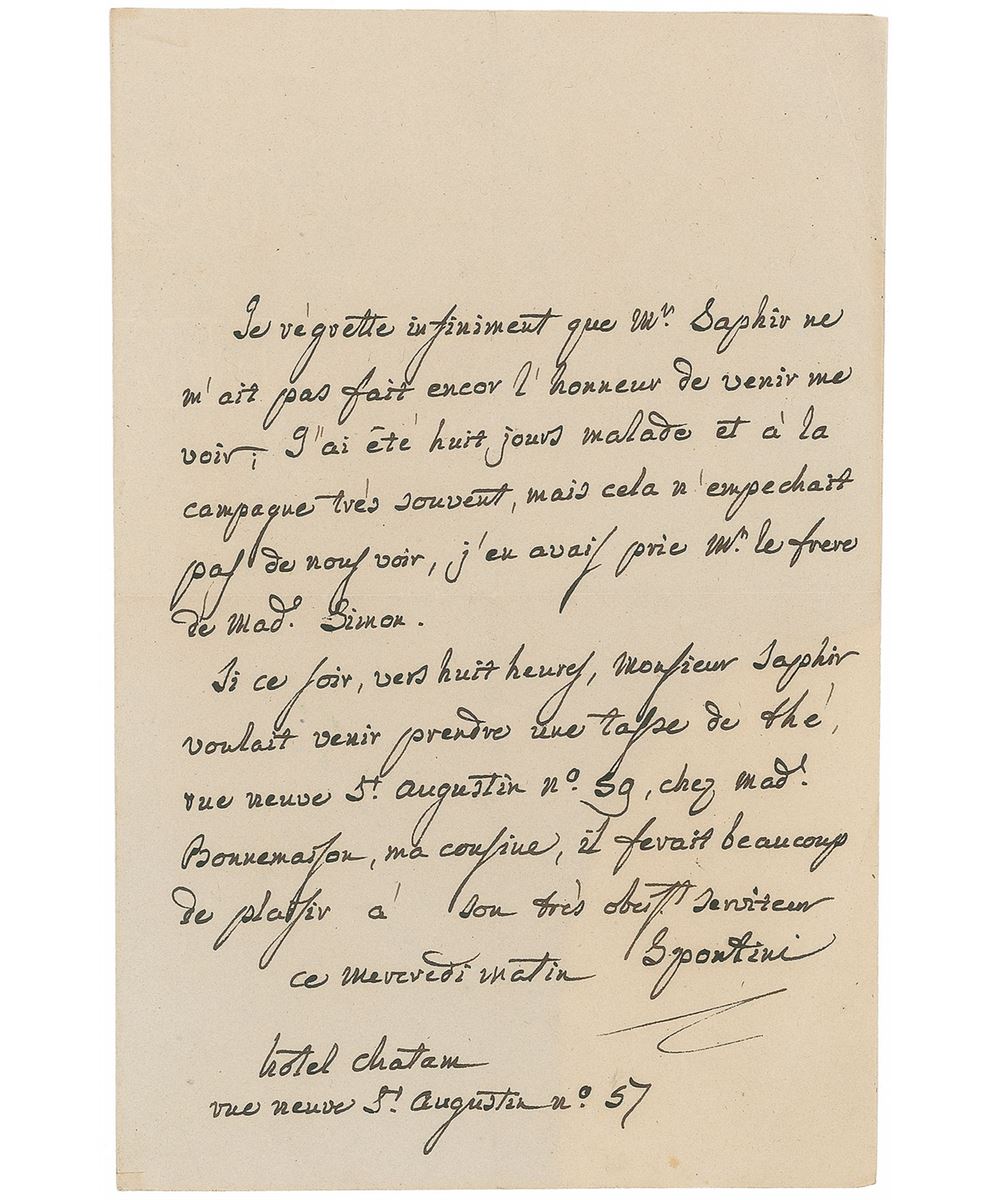 Je régrette infiniment que Mr. Saphir ne
m'ait pas fait encor l'honneur de venir me
voir; J'ai été huit jours malade et à la
campagne très souvent, mais cela n'empechait
pas de nous voir, j'en avais prie Mr. le frere
de Mad.e Simon.
Si ce soir, vers huit heures, Monsieur Saphir
voulait venir prendre une tasse de thé,
rue neuve St. Augustin no. 59, chez Mad.e
Bonnemaison, ma cousine, il ferait beaucoup
de plaisir à son très obésst. serviteur
Spontini
ce mercredi matin
hôtel chatam
rue neuve St. Augustin no. 57